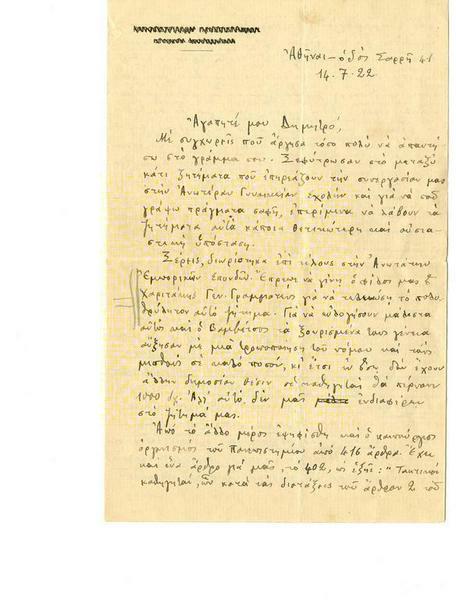 Ἀθῆναι – ὁδὸς Σαρρῆ 41
14.7.22
Ἀγαπητέ μου Δημητρό,
Μὲ συγχωρεῖς ποῦ ἄργησα τόσο πολὺ νὰ ἀπαντή
σω στὸ γράμμα σου. Ξεφύτρωσαν στὸ μεταξὺ
κάτι ζητήματα ποῦ ἐπηρεάζουν τὴν συνεργασίαν μας
στὴν Ἀνωτέραν Γυναικείαν Σχολὴν καὶ γιὰ νὰ σοῦ
γράψω πράγματα σαφῆ, ἐπερίμενα νὰ λάβουν τὰ
ζητήματα αὐτὰ κάποια θετικώτερη καὶ οὐσια-
στικὴ ὑπόσταση.
Ξέρεις, διωρίστηκα ἐπὶ τέλους στὴν Ἀνωτάτην
Ἐμπορικῶν Σπουδῶν. Ἔπρεπε νὰ γίνῃ ὁ φίλος μας ὁ
Χαριτάκης Γεν. Γραμματεὺς γιὰ νὰ τελειώσῃ τὸ πολυ-
θρύλητον αὐτὸ ζήτημα. Γιὰ νὰ εὐλογήσουν μάλιστα
αὐτὸς καὶ ὁ Βαμβέτσος τὰ ξουρισμένα τους γένεια
αὔξησαν μὲ μιὰ τροποποίηση τοῦ νόμου καὶ τοὺς
μισθοὺς σὲ καλὸ ποσόν, κι ἔτσι ἂν δὲν ἔχουν
ἄλλην δημοσίαν θέσιν οἱ καθηγηταὶ θὰ πέρνουν
1000 δρ. Ἀλλ' αὐτὸ δὲν μᾶς ἐνδιαφέρει
στὸ ζήτημά μας.
Ἀπὸ τὸ ἄλλο μέρος ἐψηφίσθη καὶ ὁ καινούργιος
ὀργανισμὸς τοῦ Πανεπιστημίου ἀπὸ 416 ἄρθρα. Ἔχει
καὶ ἕνα ἄρθρο γιὰ μᾶς, τὸ 402, ὡς ἑξῆς: "Τακτικοὶ
καθηγηταί, ὧν κατὰ τὰς διατάξεις τοῦ ἄρθρου 2 τοῦ